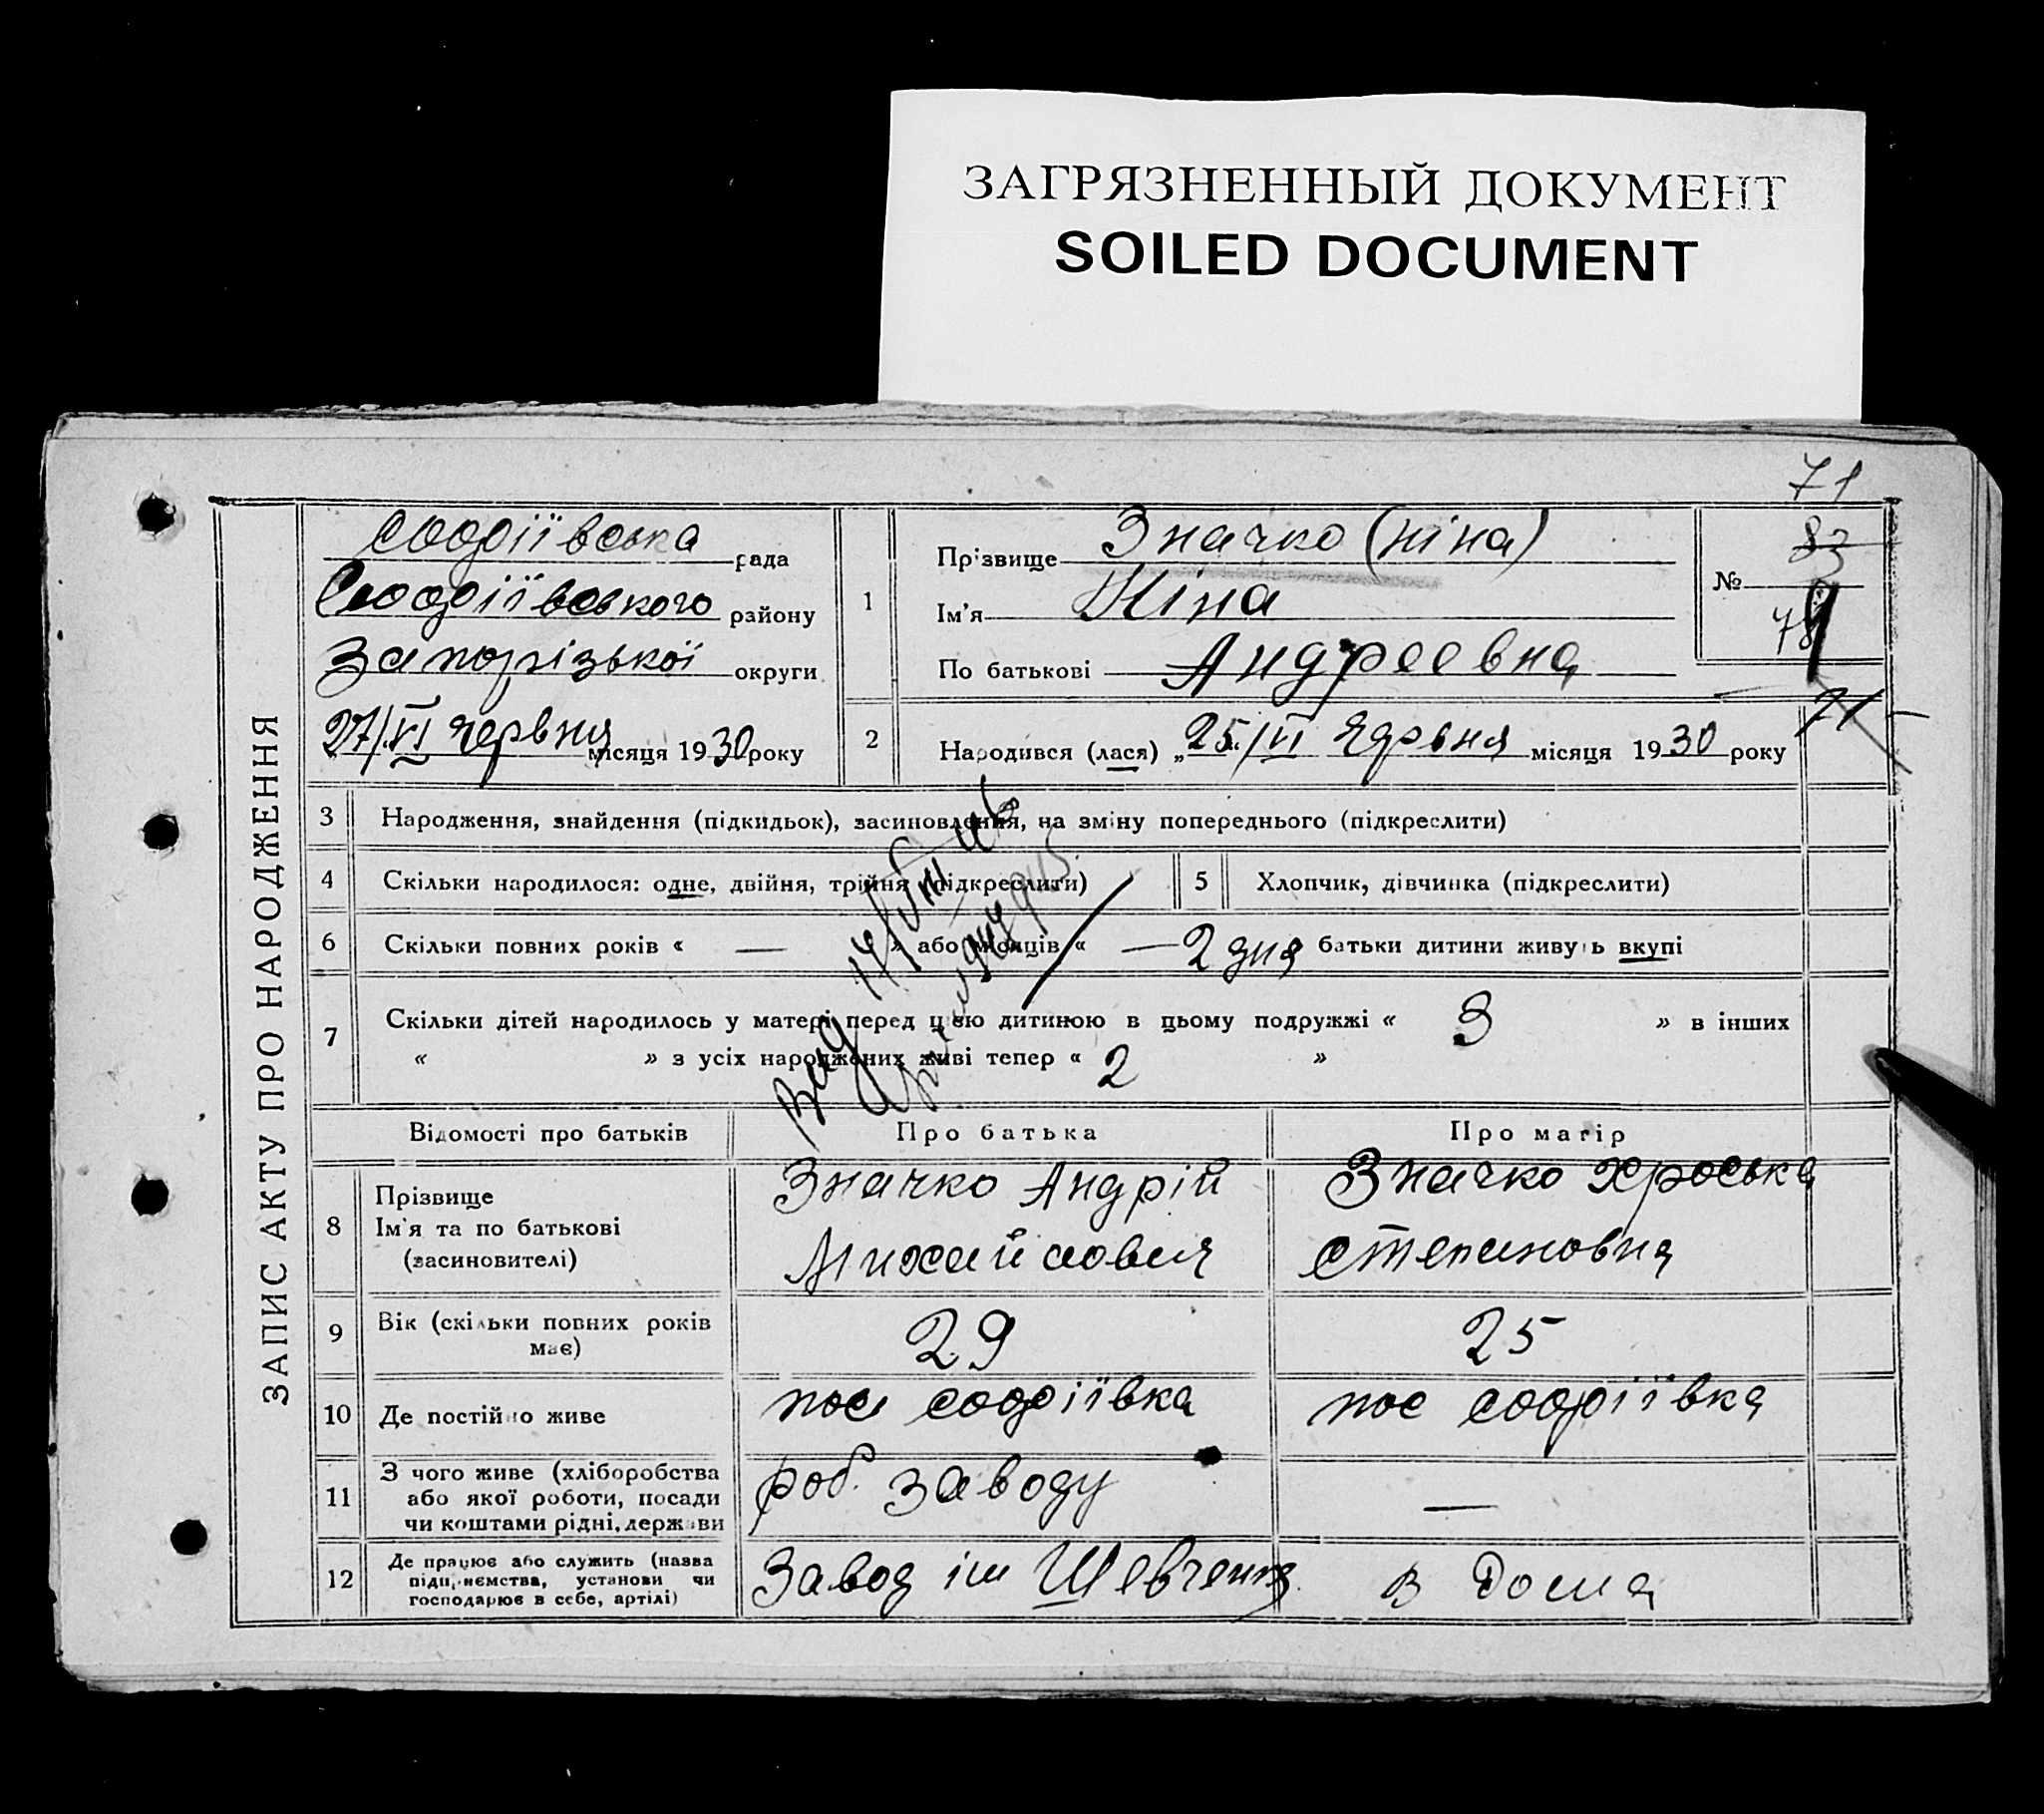 ЗАГРЯЗНЕННЫЙ ДОКУМЕНТ
SOILED DOCUMENT
71
ЗАПИС АКТУ ПРО НАРОДЖЕННЯ
софіївська рада
Софіївського району
Запорізької округи
27/VI червня місяця 1930 року
1
Прізвище Значко (ніна)
Ім'я Ніна
По батькові Андреевна
№ 83
78
71
2
Народився (лася) „25/VI Чэрвня місяця 1930 року
3 Народження, знайдення (підкидьок), засиновлення, на зміну попереднього (підкреслити)
4 Скільки народилося: одне, двійня, трійня (підкреслити)
5 Хлопчик, дівчинка (підкреслити)
6 Скільки повних років « — » або місяців « — 2 дня батьки дитини живуть вкупі
7 Скільки дітей народилось у матері перед цією дитиною в цьому подружжі « 3 » в інших
« » з усіх народжених живі тепер « 2 »
Відомості про батьків Про батька Про матір
8 Прізвище
Ім'я та по батькові
(засиновителі)
Значко Андрій
Михайлович
Значко Хроська
степановна
9 Вік (скільки повних років
має)
29
25
10 Де постійно живе
пос софіївка
пос софіївка
11 З чого живе (хліборобства
або якої роботи, посади
чи коштами рідні, держави
роб. заводу
—
12 Де працює або служить (назва
підприємства, установи чи
господарює в себе, артілі)
Завод ім Шевченка
в дома